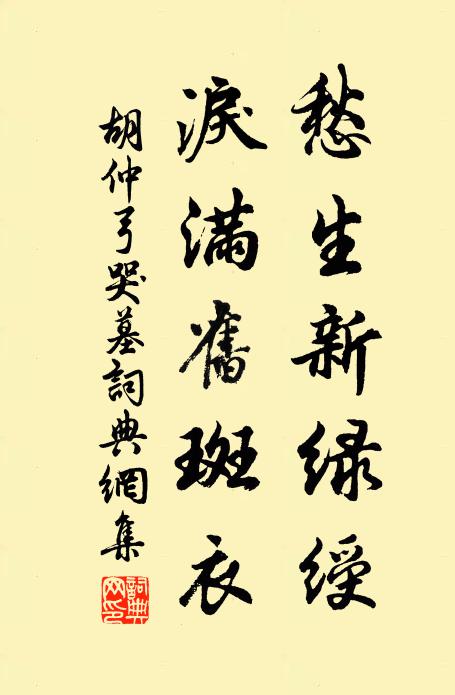 愁生新緑綬
淚滿舊斑衣
胡仲弓哭墓詞典網集
詞典網印